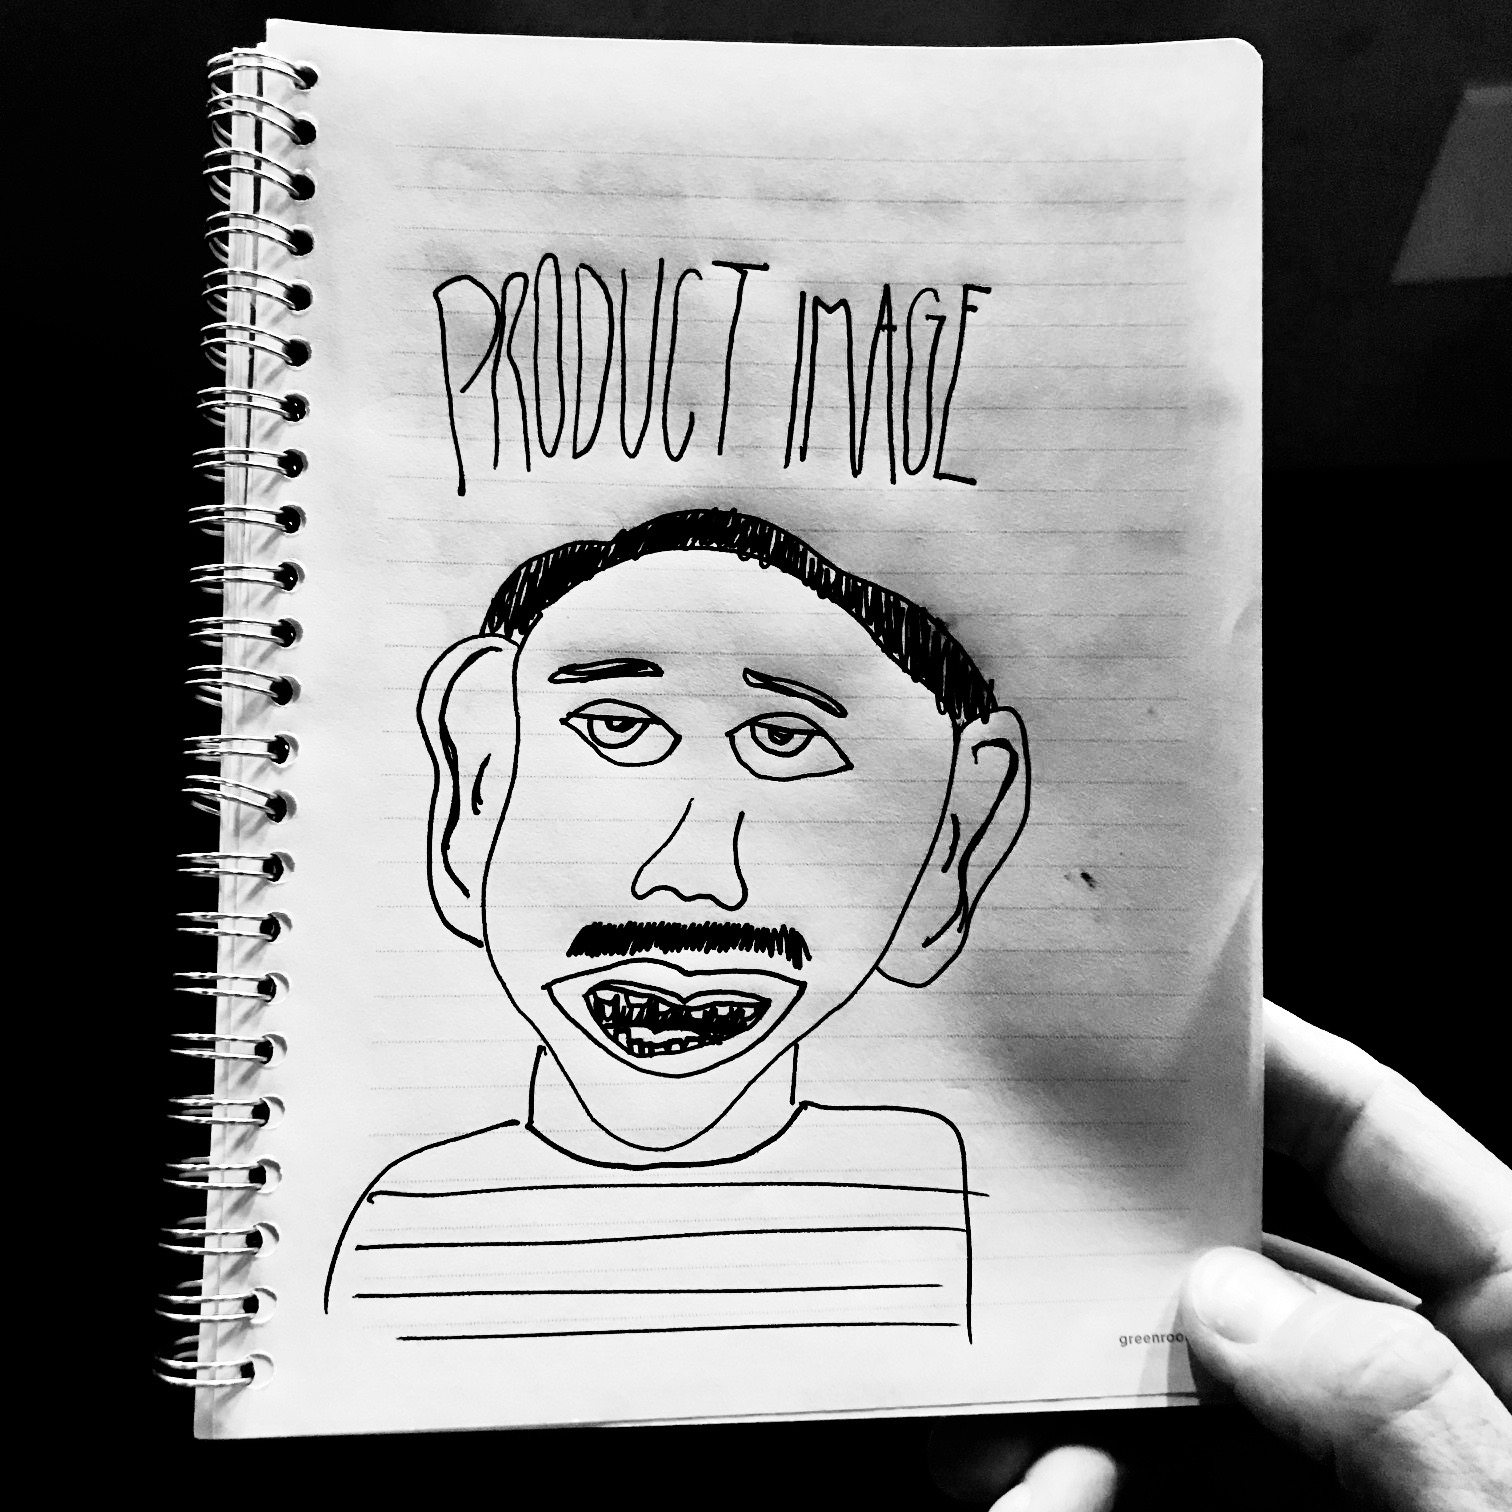 PRODUCT IMAGE
greenroo